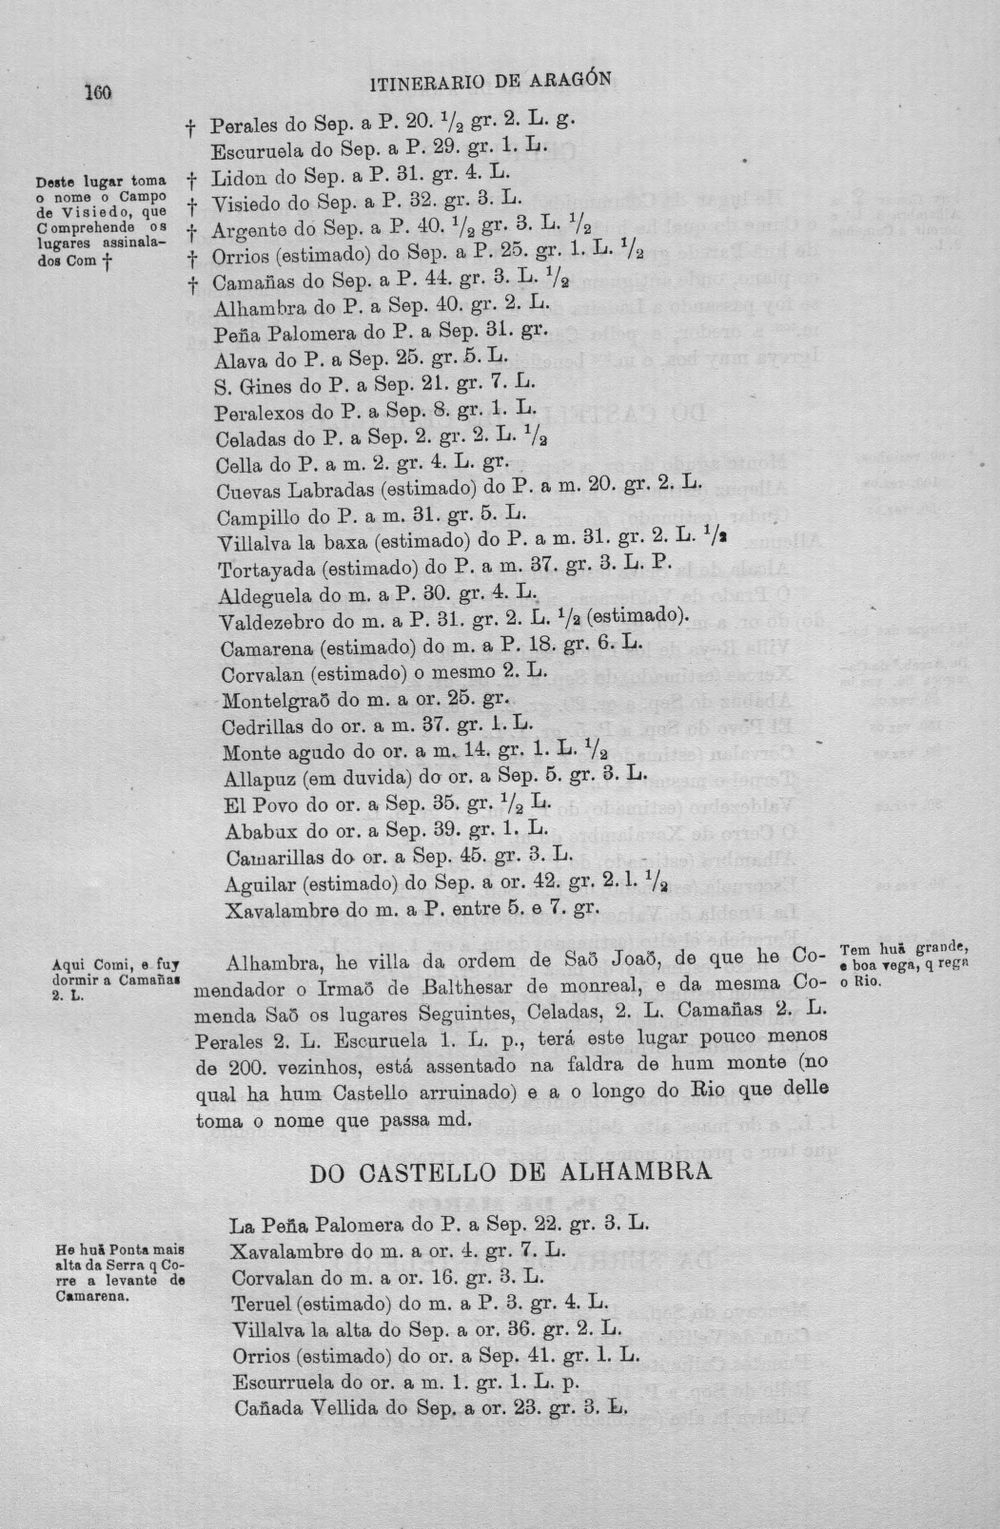 160
ITINERARIO DE ARAGÓN
† Perales do Sep. a P. 20. 1/2 gr. 2. L. g.
Escuruela do Sep. a P. 29. gr. 1. L.
Deste lugar toma
o nome o Campo
de Visiedo, que
Comprehende os
lugares assinala-
dos Com †
† Lidon do Sep. a P. 31. gr. 4. L.
† Visiedo do Sep. a P. 32. gr. 3. L.
† Argente do Sep. a P. 40. 1/2 gr. 3. L. 1/2
† Orrios (estimado) do Sep. a P. 25. gr. 1. L. 1/2
† Camañas do Sep. a P. 44. gr. 3. L. 1/2
Alhambra do P. a Sep. 40. gr. 2. L.
Peña Palomera do P. a Sep. 31. gr.
Alava do P. a Sep. 25. gr. 5. L.
S. Gines do P. a Sep. 21. gr. 7. L.
Peralexos do P. a Sep. 8. gr. 1. L.
Celadas do P. a Sep. 2. gr. 2. L. 1/2
Cella do P. a m. 2. gr. 4. L. gr.
Cuevas Labradas (estimado) do P. a m. 20. gr. 2. L.
Campillo do P. a m. 31. gr. 5. L.
Villalva la baxa (estimado) do P. a m. 31. gr. 2. L. 1/2
Tortayada (estimado) do P. a m. 37. gr. 3. L. P.
Aldeguela do m. a P. 30. gr. 4. L.
Valdezebro do m. a P. 31. gr. 2. L. 1/2 (estimado).
Camarena (estimado) do m. a P. 18. gr. 6. L.
Corvalan (estimado) o mesmo 2. L.
Montelgraõ do m. a or. 25. gr.
Cedrillas do or. a m. 37. gr. 1. L.
Monte agudo do or. a m. 14. gr. 1. L. 1/2
Allapuz (em duvida) do or. a Sep. 5. gr. 3. L.
El Povo do or. a Sep. 35. gr. 1/2 L.
Ababux do or. a Sep. 39. gr. 1. L.
Camarillas do or. a Sep. 45. gr. 3. L.
Aguilar (estimado) do Sep. a or. 42. gr. 2. l. 1/2
Xavalambre do m. a P. entre 5. e 7. gr.
Aqui Comi, e fuy
dormir a Camañas
2. L.
Alhambra, he villa da ordem de Saõ Joaõ, de que he Co-
mendador o Irmaõ de Balthesar de monreal, e da mesma Co-
menda Saõ os lugares Seguintes, Celadas, 2. L. Camañas 2. L.
Perales 2. L. Escuruela 1. L. p., terá este lugar pouco menos
de 200. vezinhos, está assentado na faldra de hum monte (no
qual ha hum Castello arruinado) e a o longo do Rio que delle
toma o nome que passa md.
Tem huã grande,
e boa vega, q rega
o Rio.
DO CASTELLO DE ALHAMBRA
La Peña Palomera do P. a Sep. 22. gr. 3. L.
He huã Ponta mais
alta da Serra q Co-
rre a levante de
Camarena.
Xavalambre do m. a or. 4. gr. 7. L.
Corvalan do m. a or. 16. gr. 3. L.
Teruel (estimado) do m. a P. 3. gr. 4. L.
Villalva la alta do Sep. a or. 36. gr. 2. L.
Orrios (estimado) do or. a Sep. 41. gr. 1. L.
Escurruela do or. a m. 1. gr. 1. L. p.
Cañada Vellida do Sep. a or. 23. gr. 3. L.